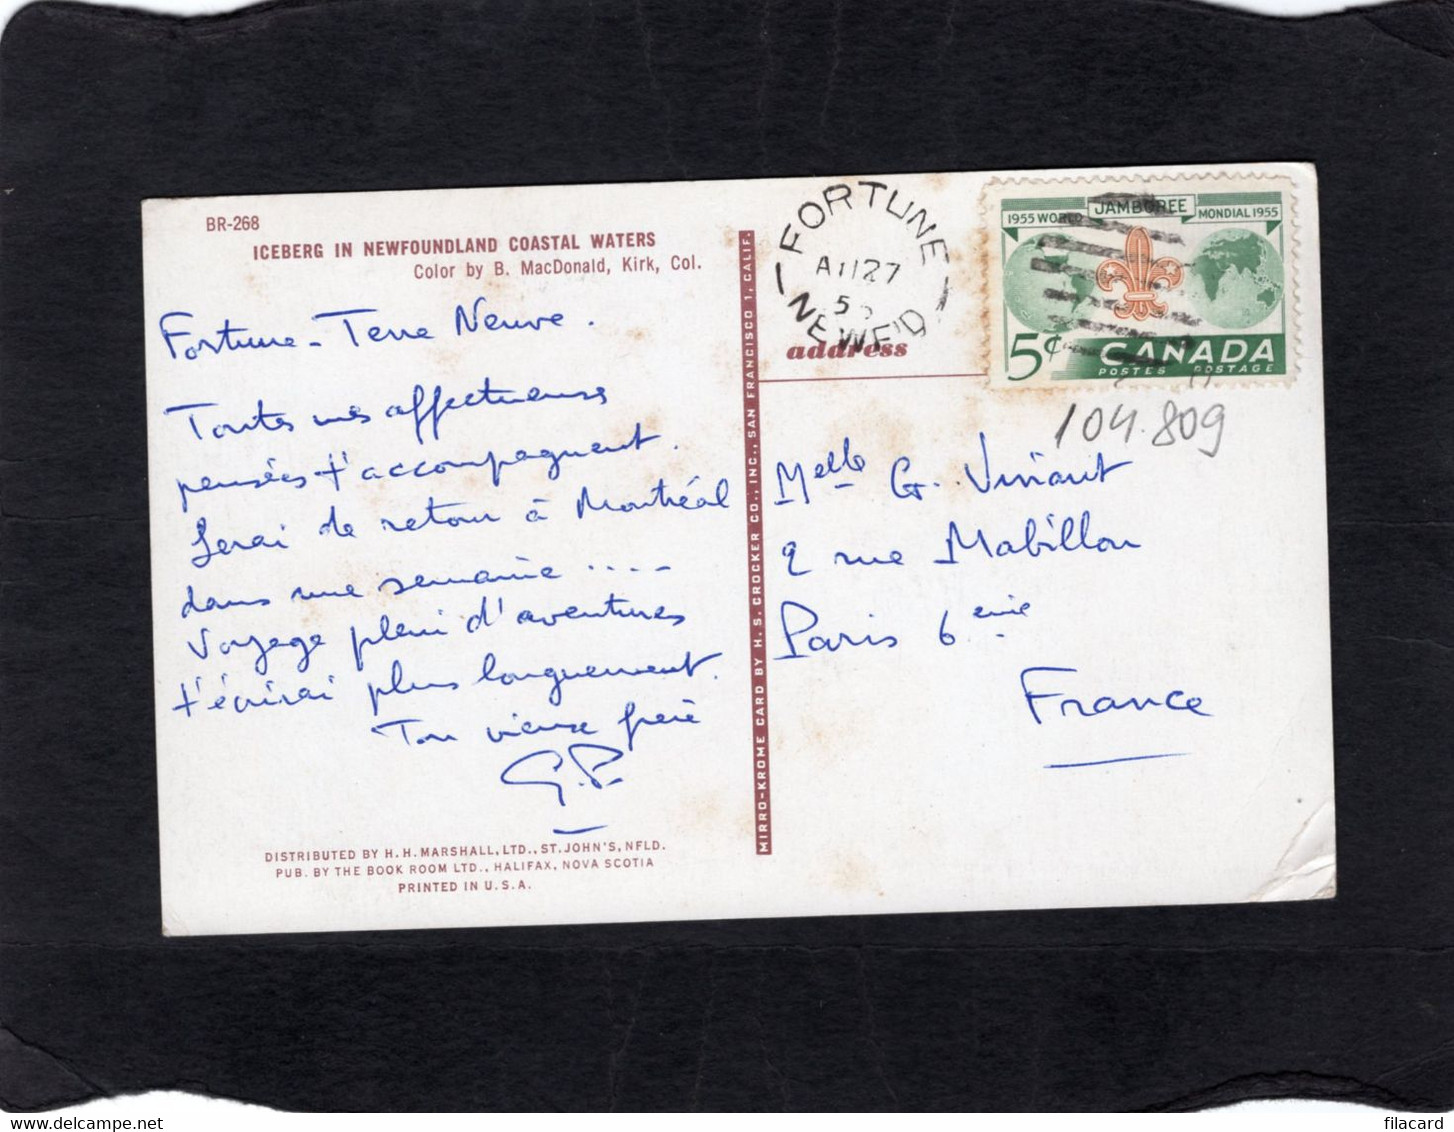 BR-268
ICEBERG IN NEWFOUNDLAND COASTAL WATERS
Color by B. MacDonald, Kirk, Col.
Fortune - Terre Neuve.
Toutes mes affectueuses
pensées t'accompagnent.
Serai de retour à Montréal
dans une semaine ....
Voyage plein d'aventures
t'écrirai plus longuement.
Ton vieux frère
G.P.
DISTRIBUTED BY H. H. MARSHALL, LTD., ST. JOHN'S, NFLD.
PUB. BY THE BOOK ROOM LTD., HALIFAX, NOVA SCOTIA
PRINTED IN U.S.A.
MIRRO-KROME CARD BY H. S. CROCKER CO., INC., SAN FRANCISCO 1, CALIF.
FORTUNE
27
NEWF'D
address
1955 WORLD JAMBOREE MONDIAL 1955
5¢ CANADA
POSTES POSTAGE
104.809
Melle G.
2 rue Mabillon
Paris 6eme
France
filacard